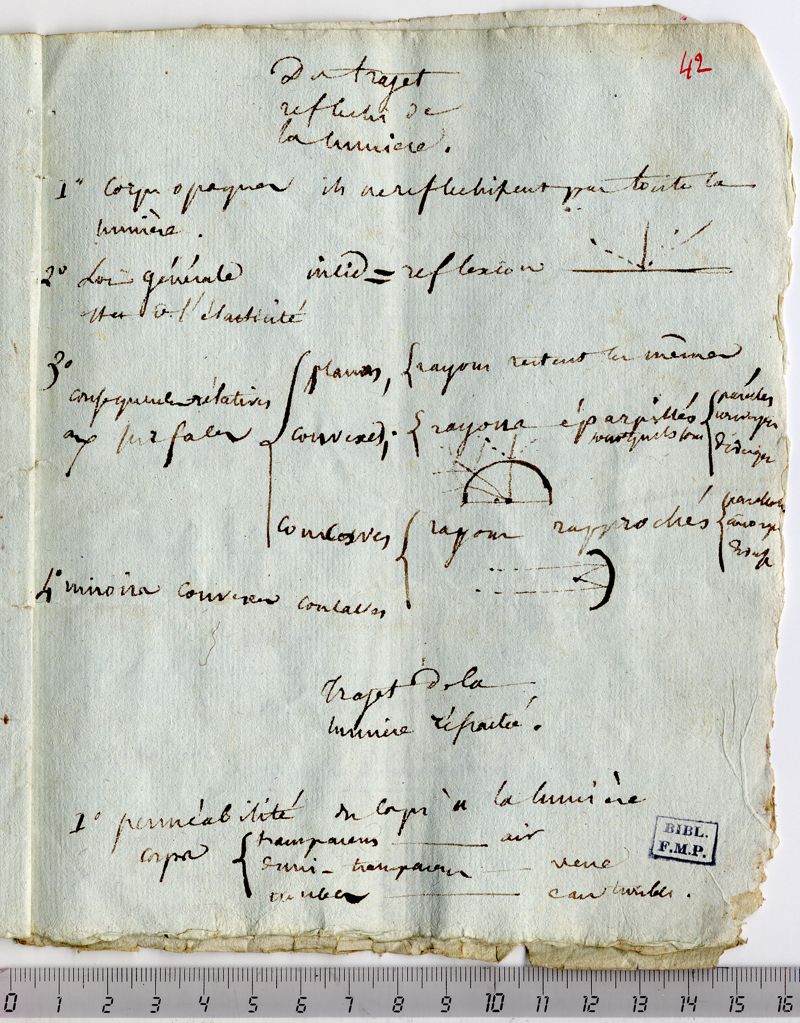 42
Du trajet
reflechi de
la lumiere.
1° Corps opaques ils ne reflechissent pas toute la
lumière.
2° Loi générale incid = reflexion
de l'élasticité
3°
consequences rélatives
aux surfaces
planes, rayons restent les mêmes
convexes, rayons éparpillés
paralles
converges
diverges
concaves rayons rapprochés
4° miroirs convexes concaves
Trajet de la
lumière réfractée.
1° perméabilité du corps à la lumière
corps
transparens air
demi-transparens verre
troubles eau trouble.
BIBL.
F.M.P.
0 1 2 3 4 5 6 7 8 9 10 11 12 13 14 15 16